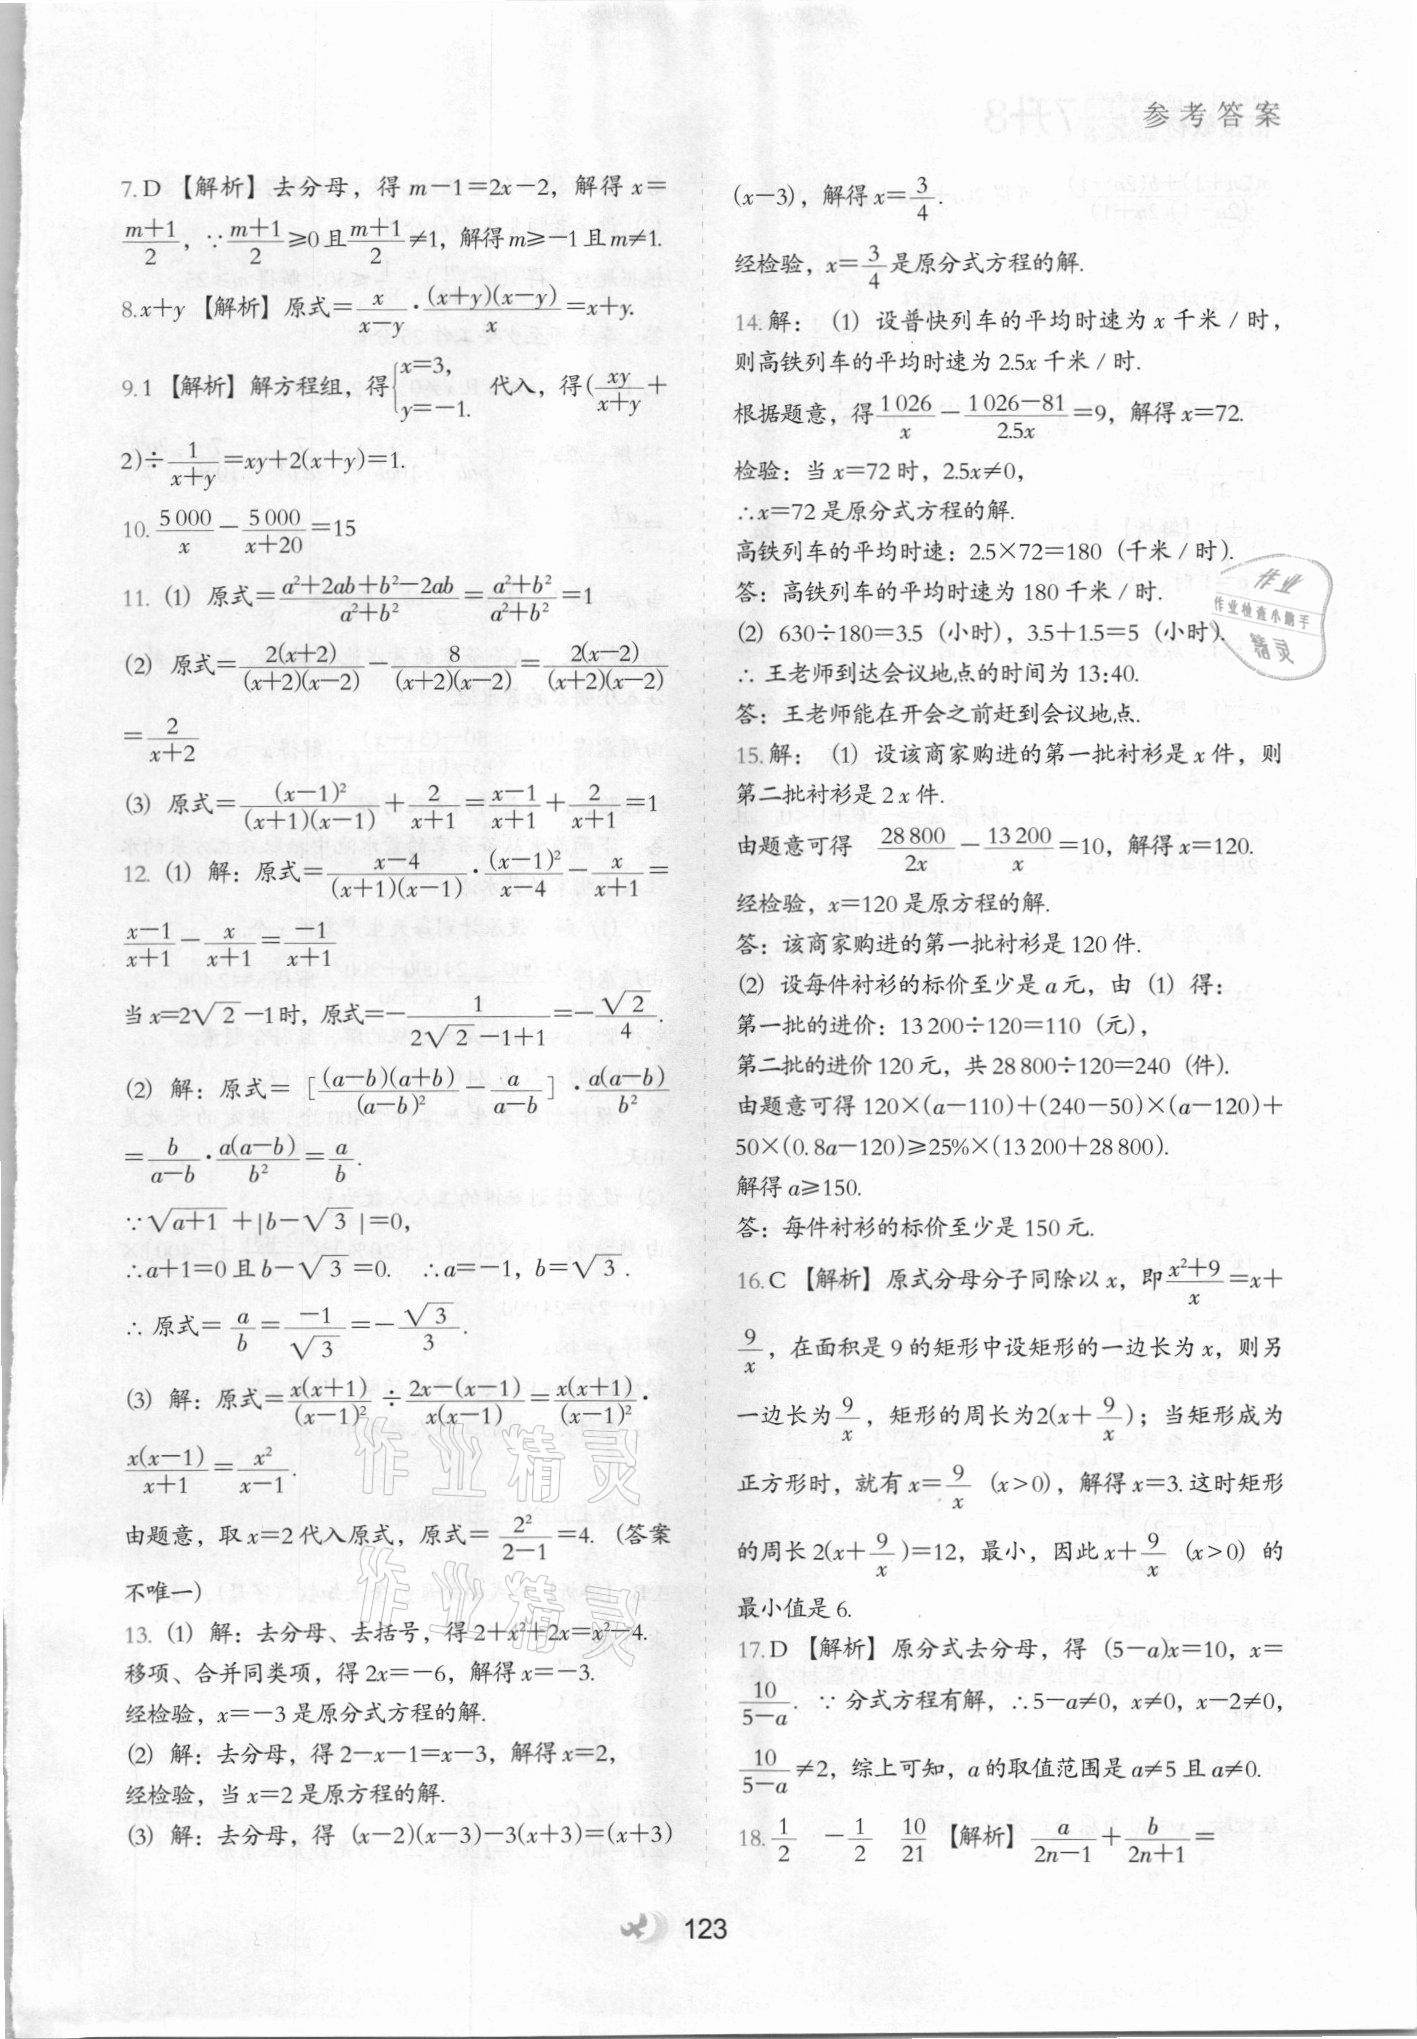 参考答案
7.D 【解析】去分母，得 m－1＝2x－2，解得 x＝
$\frac{m+1}{2}$，∵$\frac{m+1}{2}$≥0且$\frac{m+1}{2}$≠1，解得m≥－1且m≠1.
8.x＋y 【解析】原式＝$\frac{x}{x-y}$·$\frac{(x+y)(x-y)}{x}$＝x＋y.
9.1 【解析】解方程组，得$\begin{cases}x=3,\\y=-1.\end{cases}$ 代入，得($\frac{xy}{x+y}$＋
2)÷$\frac{1}{x+y}$＝xy＋2(x＋y)＝1.
10.$\frac{5000}{x}$－$\frac{5000}{x+20}$＝15
11. (1) 原式＝$\frac{a^2+2ab+b^2-2ab}{a^2+b^2}$＝$\frac{a^2+b^2}{a^2+b^2}$＝1
(2) 原式＝$\frac{2(x+2)}{(x+2)(x-2)}$－$\frac{8}{(x+2)(x-2)}$＝$\frac{2(x-2)}{(x+2)(x-2)}$
＝$\frac{2}{x+2}$
(3) 原式＝$\frac{(x-1)^2}{(x+1)(x-1)}$＋$\frac{2}{x+1}$＝$\frac{x-1}{x+1}$＋$\frac{2}{x+1}$＝1
12. (1) 解：原式＝$\frac{x-4}{(x+1)(x-1)}$·$\frac{(x-1)^2}{x-4}$－$\frac{x}{x+1}$＝
$\frac{x-1}{x+1}$－$\frac{x}{x+1}$＝$\frac{-1}{x+1}$
当x＝2$\sqrt{2}$－1时，原式＝－$\frac{1}{2\sqrt{2}-1+1}$＝－$\frac{\sqrt{2}}{4}$.
(2) 解：原式＝[$\frac{(a-b)(a+b)}{(a-b)^2}$－$\frac{a}{a-b}$]·$\frac{a(a-b)}{b^2}$
＝$\frac{b}{a-b}$·$\frac{a(a-b)}{b^2}$＝$\frac{a}{b}$.
∵$\sqrt{a+1}$＋|b－$\sqrt{3}$|＝0，
∴a＋1＝0且b－$\sqrt{3}$＝0. ∴a＝－1，b＝$\sqrt{3}$.
∴原式＝$\frac{a}{b}$＝$\frac{-1}{\sqrt{3}}$＝－$\frac{\sqrt{3}}{3}$.
(3) 解：原式＝$\frac{x(x+1)}{(x-1)^2}$÷$\frac{2x-(x-1)}{x(x-1)}$＝$\frac{x(x+1)}{(x-1)^2}$·
$\frac{x(x-1)}{x+1}$＝$\frac{x^2}{x-1}$.
由题意，取x＝2代入原式，原式＝$\frac{2^2}{2-1}$＝4. （答案
不唯一）
13. (1) 解：去分母、去括号，得2＋x²＋2x＝x²－4.
移项、合并同类项，得2x＝－6，解得x＝－3.
经检验，x＝－3是原分式方程的解.
(2) 解：去分母，得2－x－1＝x－3，解得x＝2，
经检验，当x＝2是原方程的解.
(3) 解：去分母，得 (x－2)(x－3)－3(x＋3)＝(x＋3)
(x－3)，解得x＝$\frac{3}{4}$.
经检验，x＝$\frac{3}{4}$是原分式方程的解.
14.解：(1) 设普快列车的平均时速为x千米/时，
则高铁列车的平均时速为2.5x千米/时.
根据题意，得$\frac{1026}{x}$－$\frac{1026-81}{2.5x}$＝9，解得x＝72.
检验：当x＝72时，2.5x≠0，
∴x＝72是原分式方程的解.
高铁列车的平均时速：2.5×72＝180（千米/时）.
答：高铁列车的平均时速为180千米/时.
(2) 630÷180＝3.5（小时），3.5＋1.5＝5（小时）.
∴王老师到达会议地点的时间为13:40.
答：王老师能在开会之前赶到会议地点.
15.解：(1) 设该商家购进的第一批衬衫是x件，则
第二批衬衫是2x件.
由题意可得 $\frac{28800}{2x}$－$\frac{13200}{x}$＝10，解得x＝120.
经检验，x＝120是原方程的解.
答：该商家购进的第一批衬衫是120件.
(2) 设每件衬衫的标价至少是a元，由（1）得：
第一批的进价：13 200÷120＝110（元），
第二批的进价120元，共28 800÷120＝240（件）.
由题意可得120×(a－110)＋(240－50)×(a－120)＋
50×(0.8a－120)≥25%×(13 200＋28 800).
解得a≥150.
答：每件衬衫的标价至少是150元.
16.C 【解析】原式分母分子同除以x，即$\frac{x^2+9}{x}$＝x＋
$\frac{9}{x}$，在面积是9的矩形中设矩形的一边长为x，则另
一边长为$\frac{9}{x}$，矩形的周长为2(x＋$\frac{9}{x}$)；当矩形成为
正方形时，就有x＝$\frac{9}{x}$（x>0），解得x＝3.这时矩形
的周长2(x＋$\frac{9}{x}$)＝12，最小，因此x＋$\frac{9}{x}$（x>0）的
最小值是6.
17.D 【解析】原分式去分母，得 (5－a)x＝10，x＝
$\frac{10}{5-a}$. ∵分式方程有解，∴5－a≠0，x≠0，x－2≠0，
$\frac{10}{5-a}$≠2，综上可知，a的取值范围是a≠5且a≠0.
18.$\frac{1}{2}$ －$\frac{1}{2}$ $\frac{10}{21}$ 【解析】$\frac{a}{2n-1}$＋$\frac{b}{2n+1}$＝
作业
作业检查小助手
精灵
作业精灵
作业精灵
123